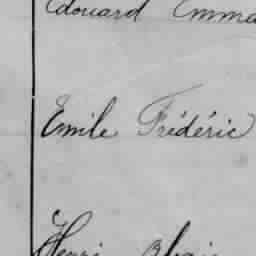 Edouard Emma
Emile Frédéric
Henri